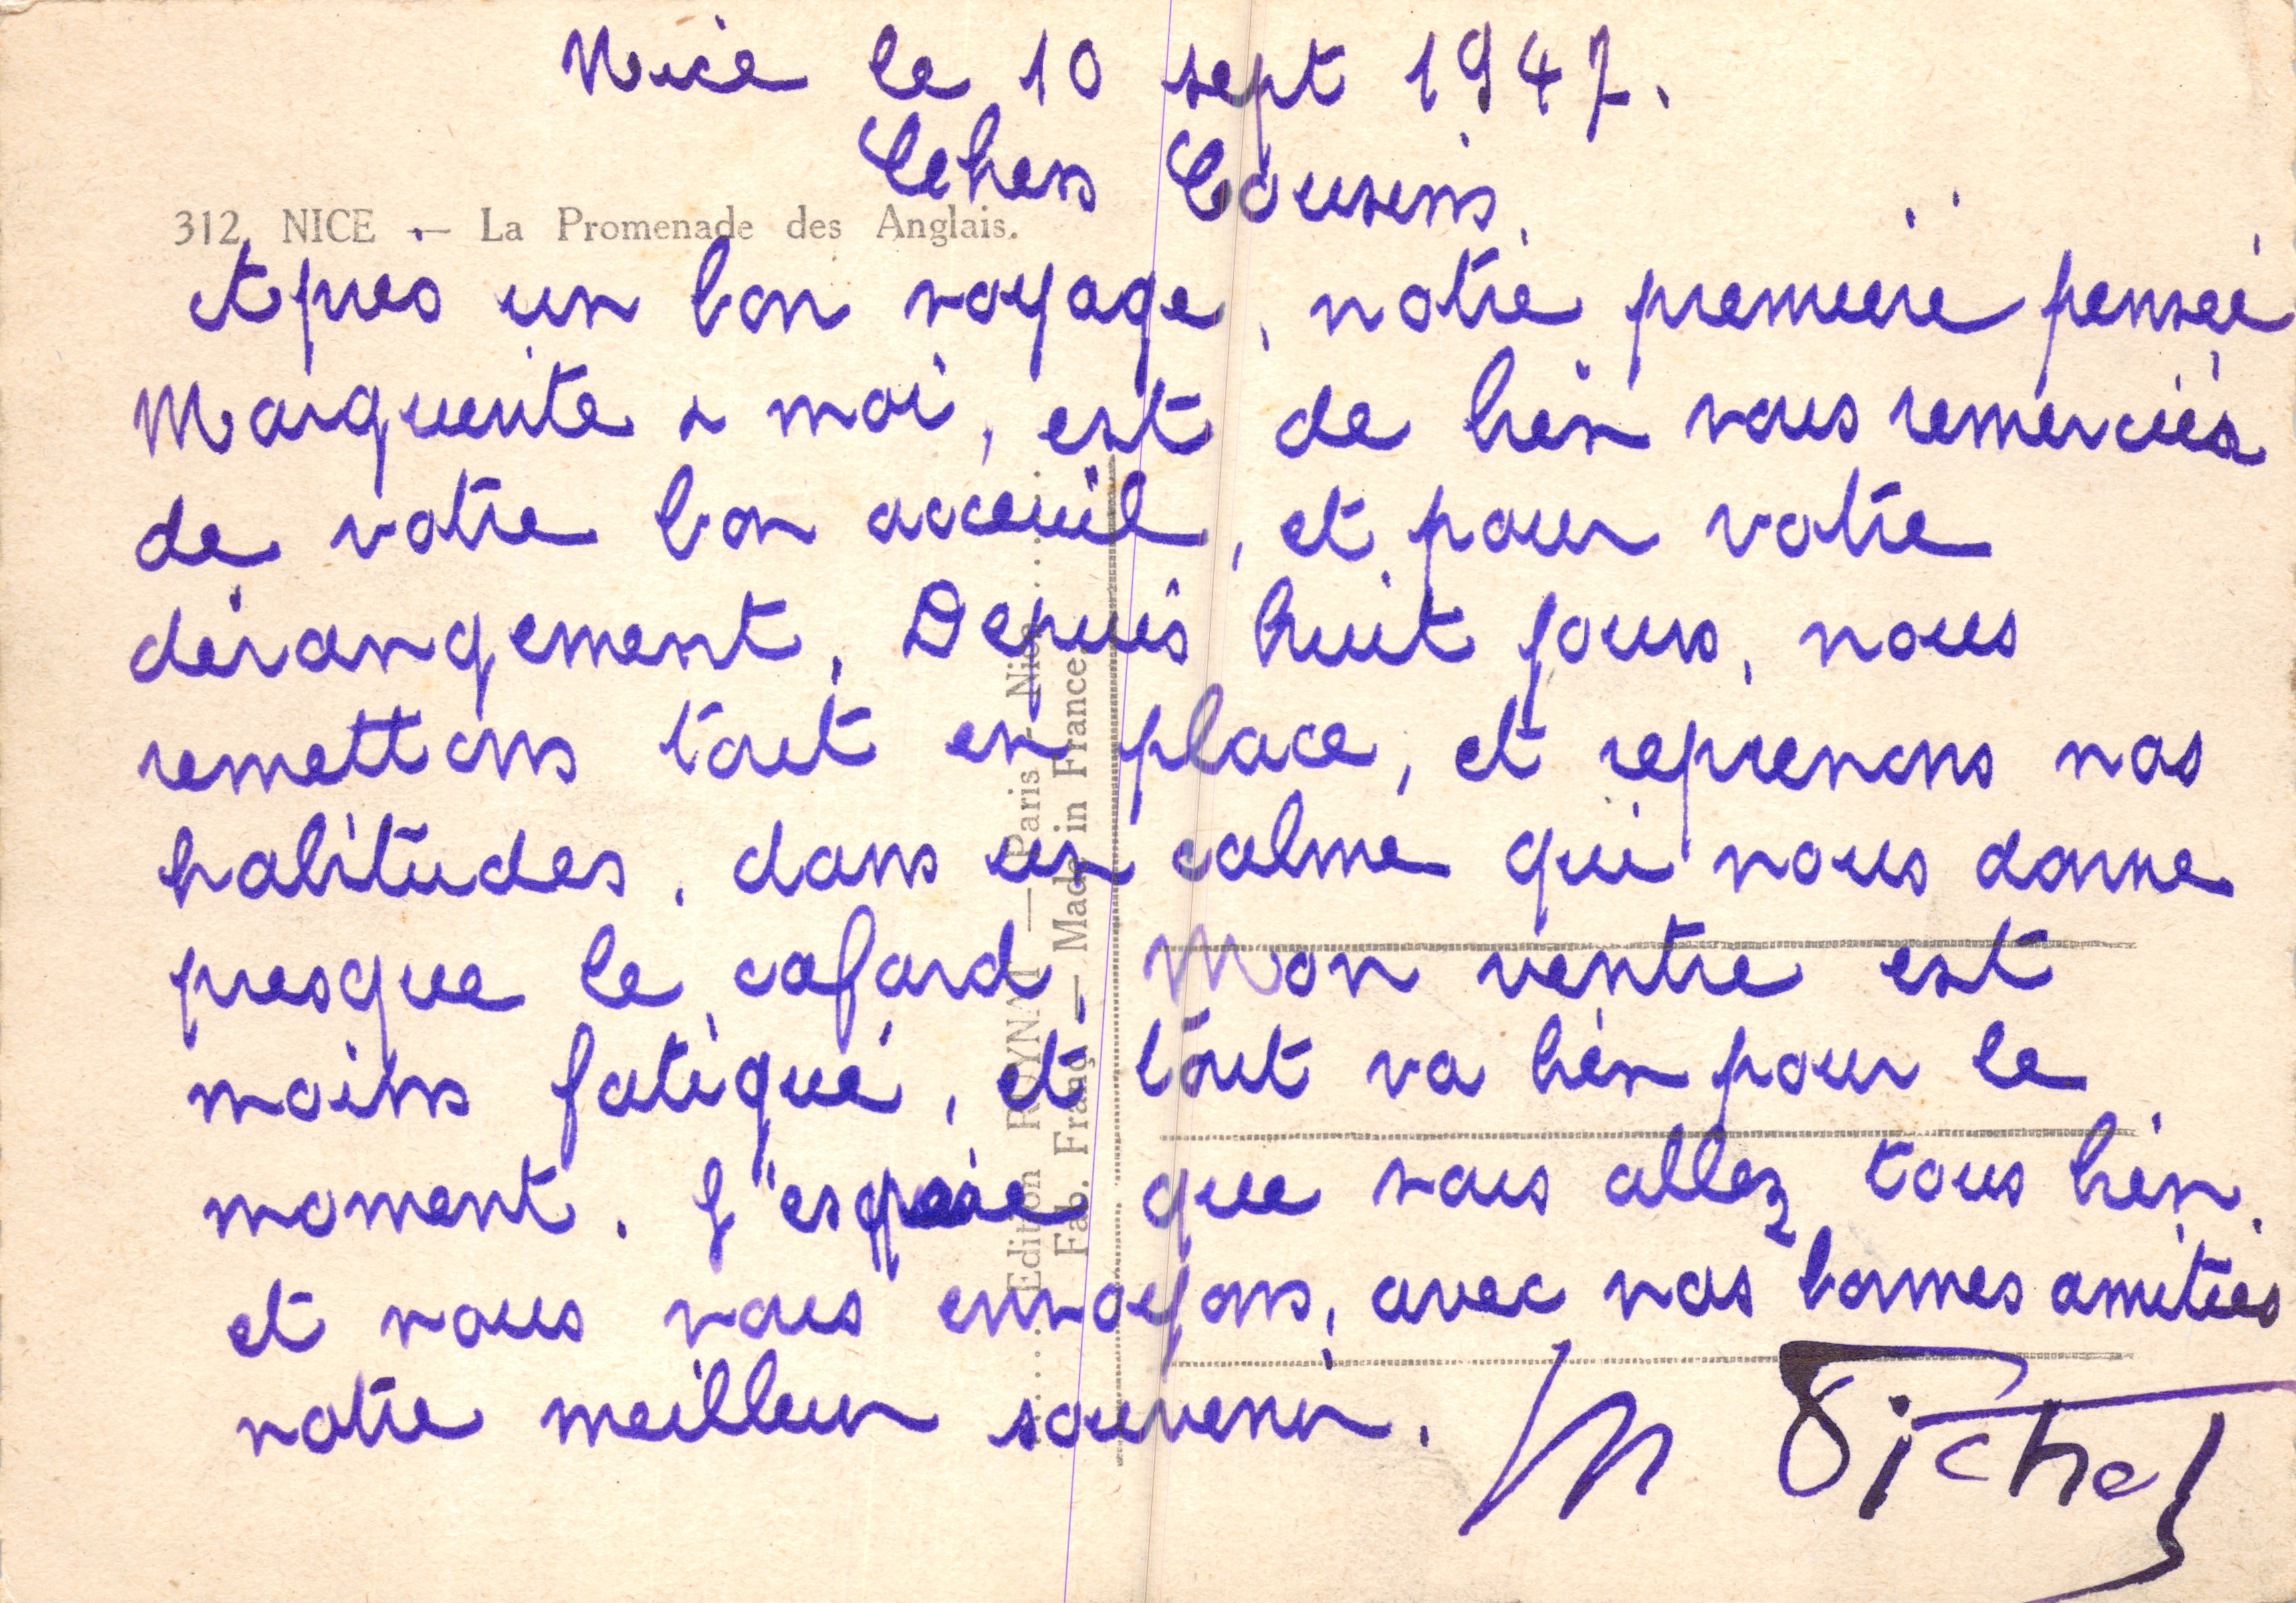 Nice le 10 sept 1947.
Cehers Cousins,
312. NICE — La Promenade des Anglais.
Après un bon voyage, notre première pensée,
Marguerite & moi, est de bien vous remercier
de votre bon acceuil, et pour votre
dérangement. Depuis huit jours, nous
remettons tout en place, et reprenons nos
habitudes, dans un calme qui nous donne
presque le cafard. Mon ventre est
moins fatigué, et tout va bien pour le
moment. J'espère que vous allez tous bien,
et nous vous envoyons, avec nos bonnes amitiés
notre meilleur souvenir.
Edition ROYNAT — Paris - Nice
Fab. Franç. — Made in France.